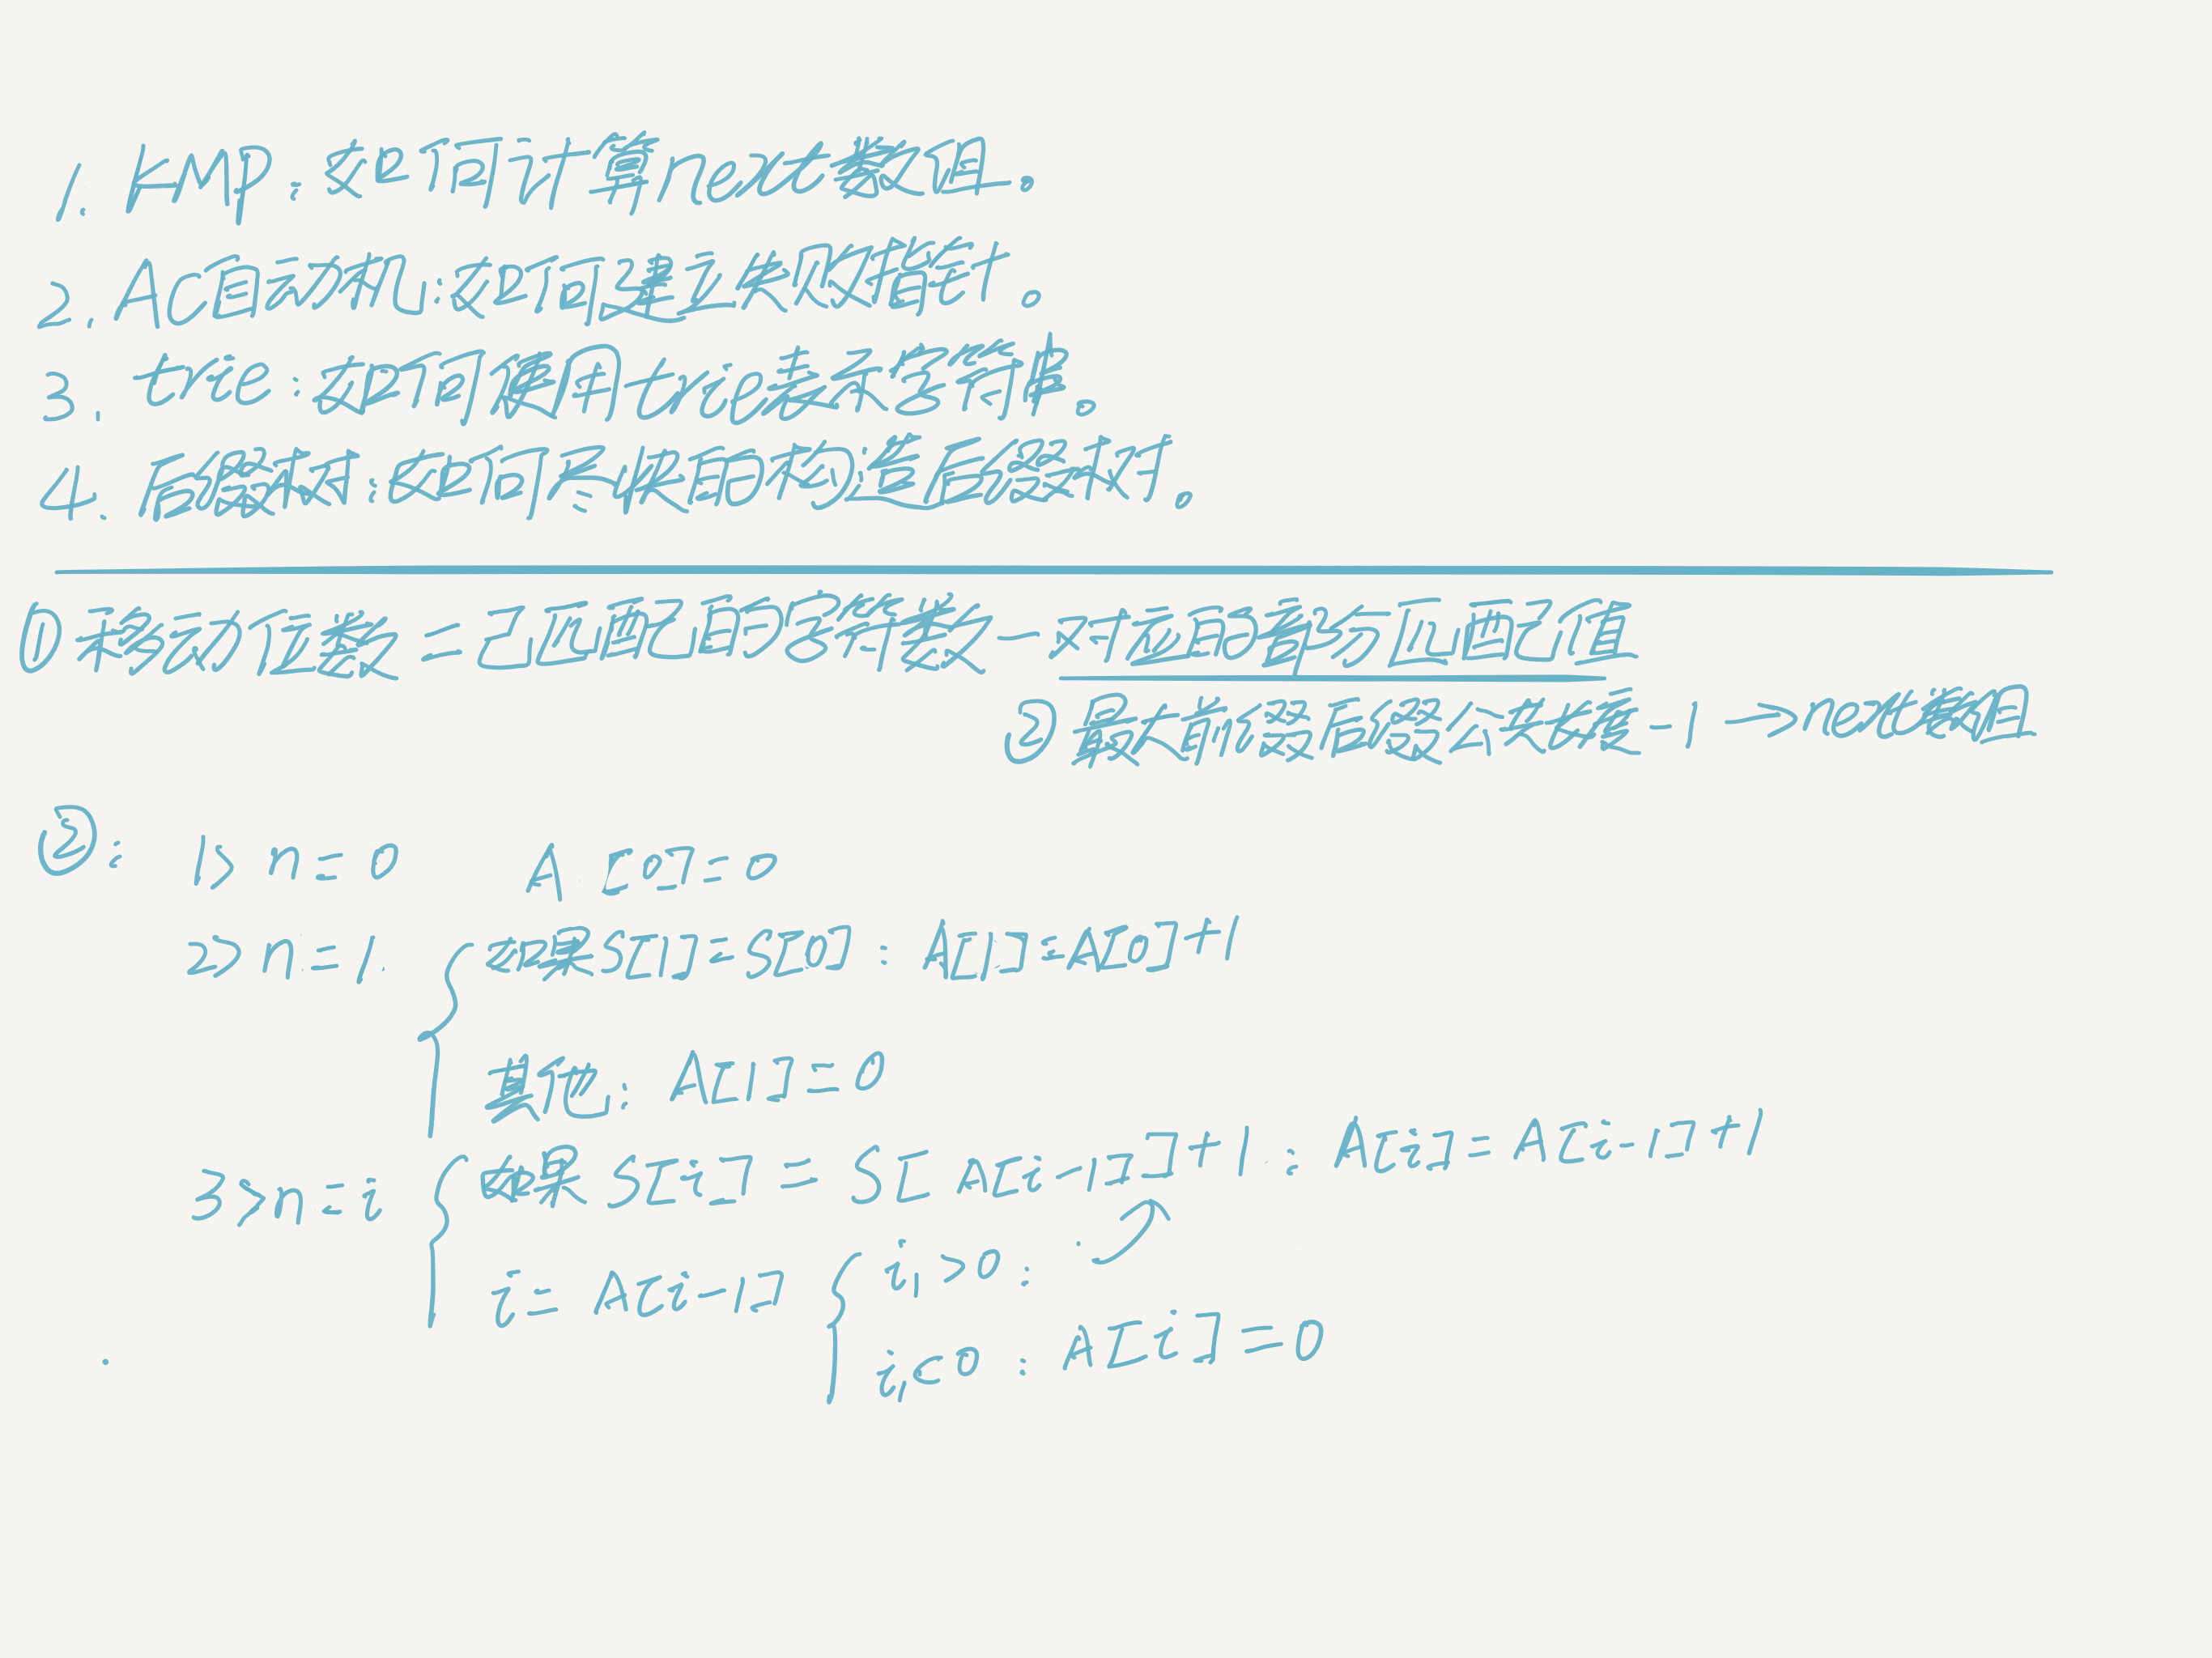 1. KMP:如何计算next数组。
2. AC自动机:如何建立失败指针。
3. trie:如何使用trie表示多字符串。
4. 后缀树:如何快速构建后缀树。
①移动位数=已匹配的字符数-对应的局部匹配值
②最大前缀后缀公共长度-1→next数组
②: 1> n=0 A[0]=0
2> n=1. 如果S[1]=S[0]: A[1]=A[0]+1
其他: A[1]=0
3> n=i 如果S[i] = S[A[i-1]]+1: A[i]=A[i-1]+1
i= A[i-1] i, >0:
i,<0: A[i]=0